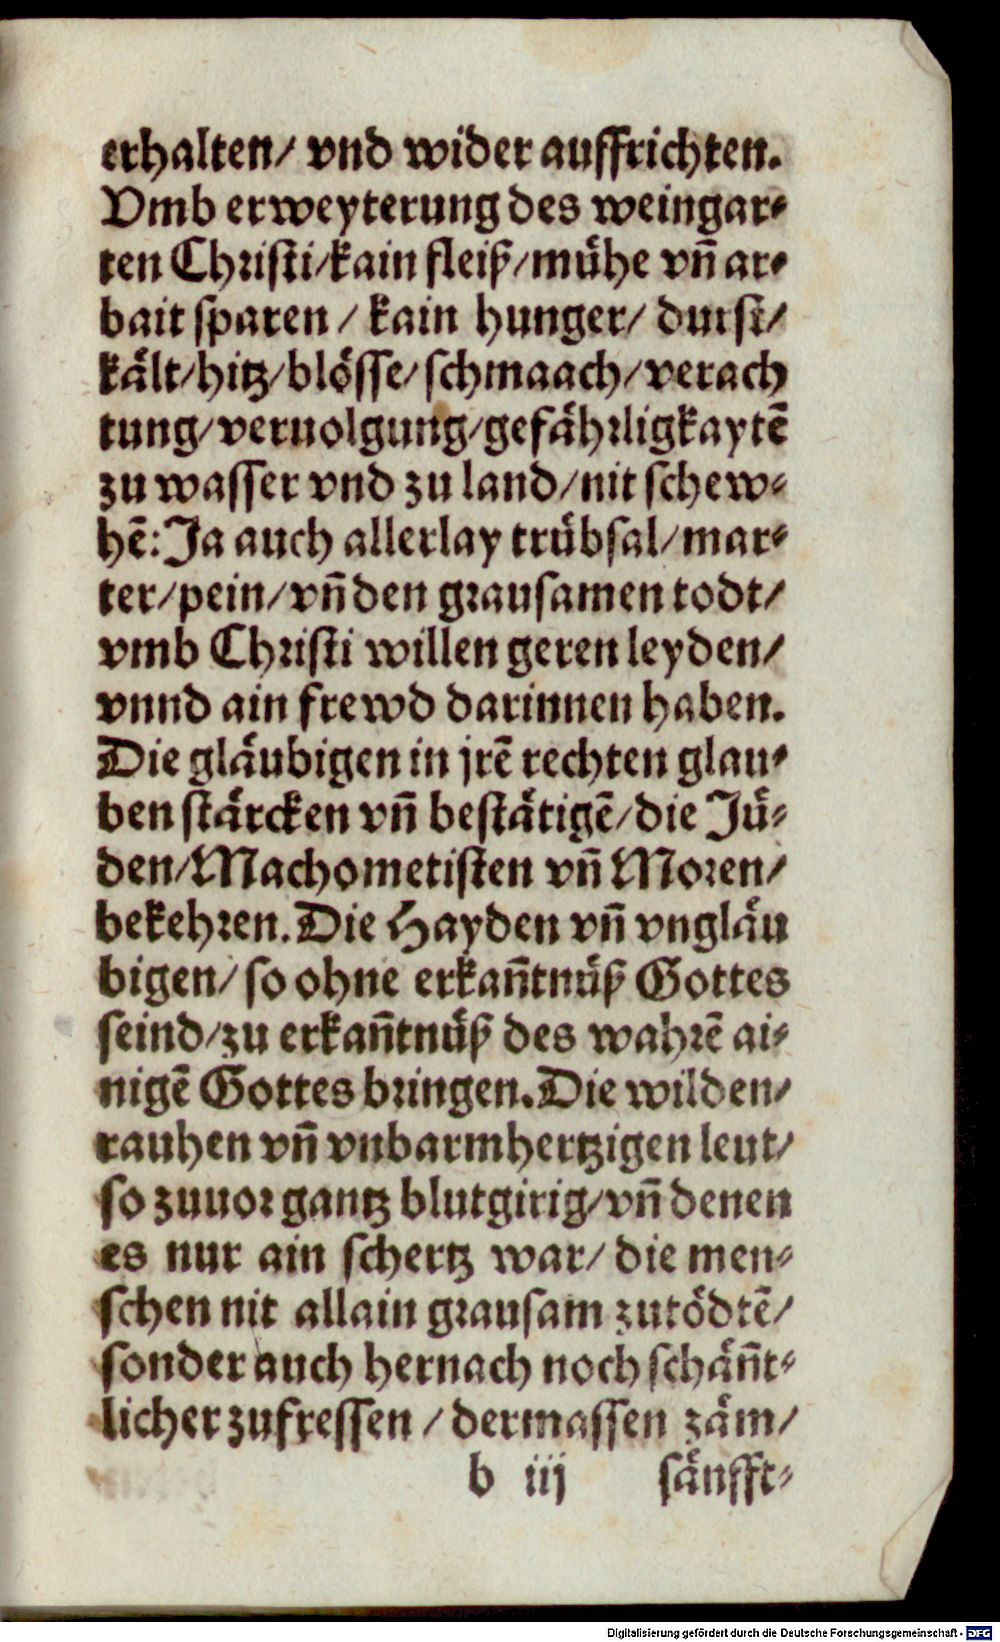 erhalten/ vnd wider auffrichten.
Vmb erweyterung des weingar⸗
ten Christi/kain fleiß/mühe vñ ar⸗
bait sparen / kain hunger/ durst/
kält/hitz/blösse/schmaach/verach
tung/veruolgung/gefährligkaytẽ
zu wasser vnd zu land/nit schew⸗
hẽ: Ja auch allerlay trübsal/mar⸗
ter/pein/vñ den grausamen todt/
vmb Christi willen geren leyden/
vnnd ain frewd darinnen haben.
Die gläubigen in jrẽ rechten glau⸗
ben stärcken vñ bestätigẽ/die Jü⸗
den/Machometisten vñ Moren/
bekehren. Die Hayden vñ vngläu
bigen/ so ohne erkañtnüß Gottes
seind/zu erkañtnüß des wahrẽ ai⸗
nigẽ Gottes bringen. Die wilden/
rauhen vñ vnbarmhertzigen leut/
so zuuor gantz blutgirig/vñ denen
es nur ain schertz war/ die men⸗
schen nit allain grausam zutödtẽ/
sonder auch hernach noch schäñt⸗
licher zufressen / dermassen zäm/
b iij sänfft⸗
Digitalisierung gefördert durch die Deutsche Forschungsgemeinschaft - DFG